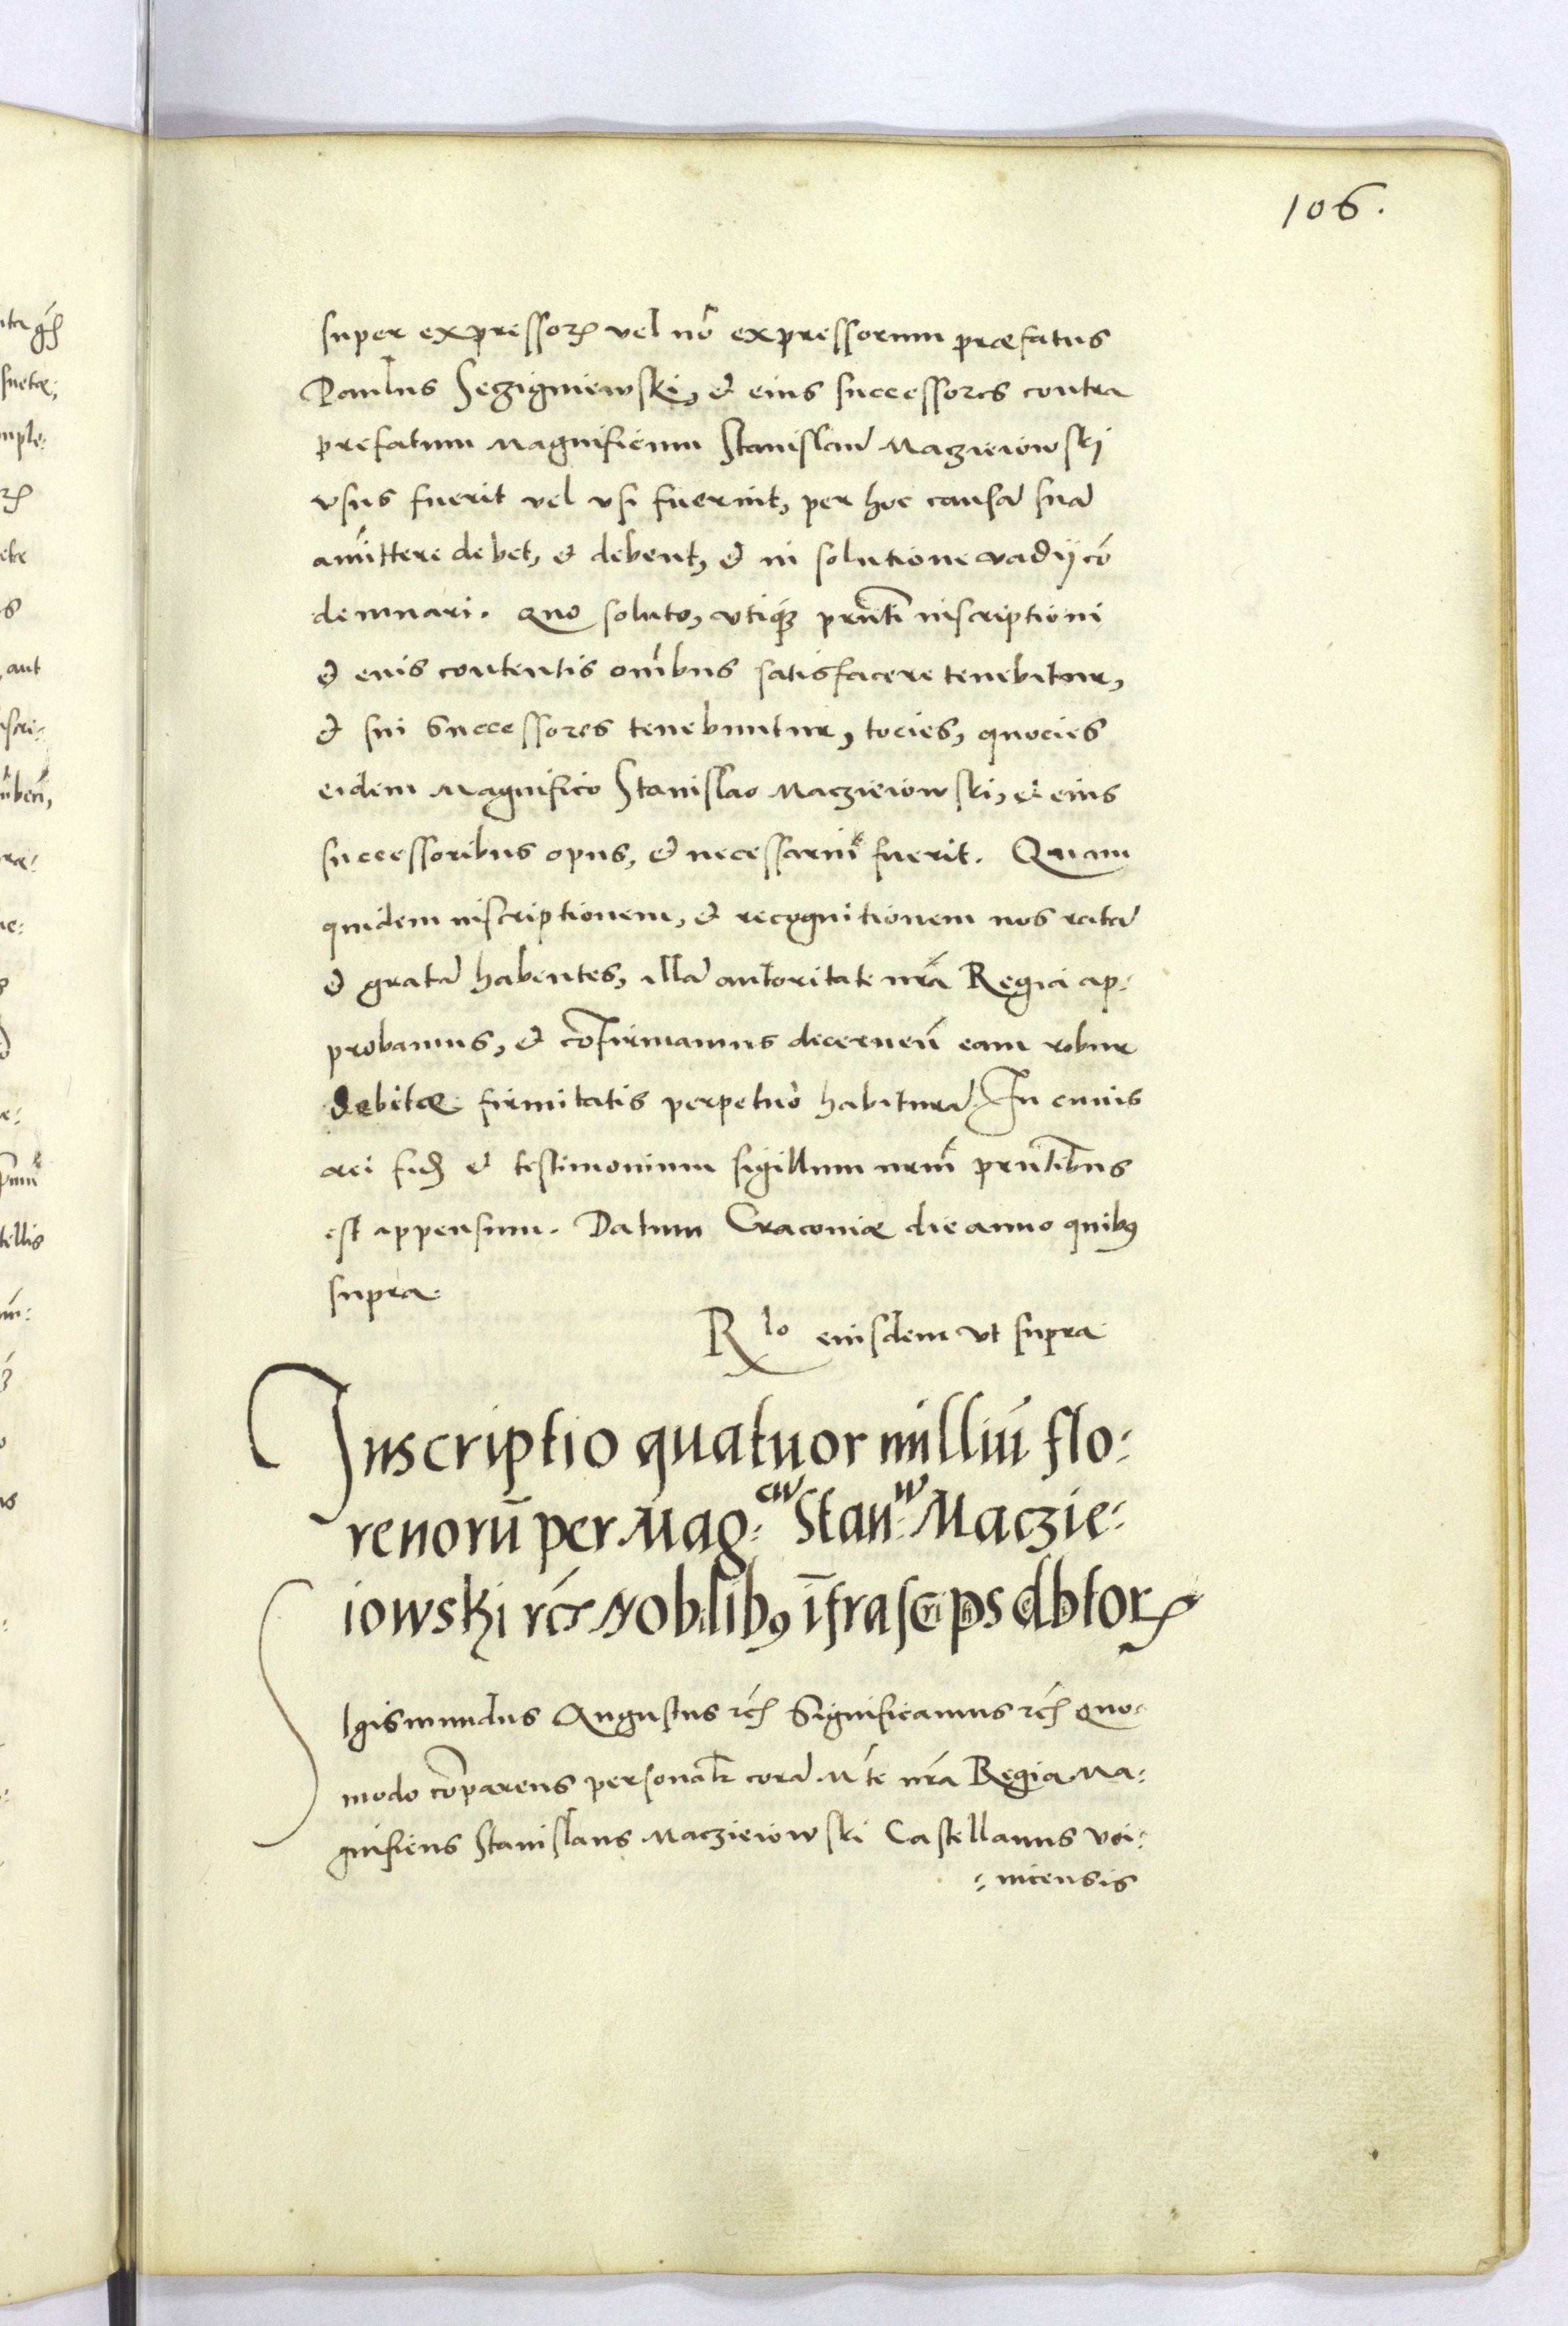 106.
super expressorꝝ vel nõ expressorum præfatus
Paulus Seczigniewski, et eius successores contra
prefatum Magnificum Stanislaũ Maczieiowski
usus fuerit vel usi fuerint, per hoc causã suã
amittere debet, et debent, et in solutione vadij cõ
demnari. Quo soluto, utiqꝫ pñti inscriptioni
et eius contentis oĩbus satisfacere tenebitur,
et sui Successores tenebuntur, tocies, quocies
eidem Magnifico Stanislao Maczieiowski, et eius
successoribus opus, et necessariũ fuerit. Quam
quidem inscriptionem, et recognitionem nos ratã
et gratã habentes, illã autoritate nrã Regia ap:
probamus, et cõfirmamus decerneñ eam robur
debitæ firmitatis perpetuò habiturã. In cuius
rei fidẽ et testimonium sigillum nrũ pñtibus
est appensum. Datum Cracoviæ die anno quibꝰ
supra.
Rlo eiusdem ut supra
Inscriptio quatuor milliũ flo:
renorũ per Mag:cum Stan:um Maczie:
iowski rc̃ Nobilibꝰ ĩfrascriptis debitorꝝ
Sigismundus Augustus rc̃ Significamus rc̃ Quo:
modo cõparens personalr corã Mte nrã Regia Ma:
gnificus Stanislaus Maczieiowski Castellanus voi:
:nicensis